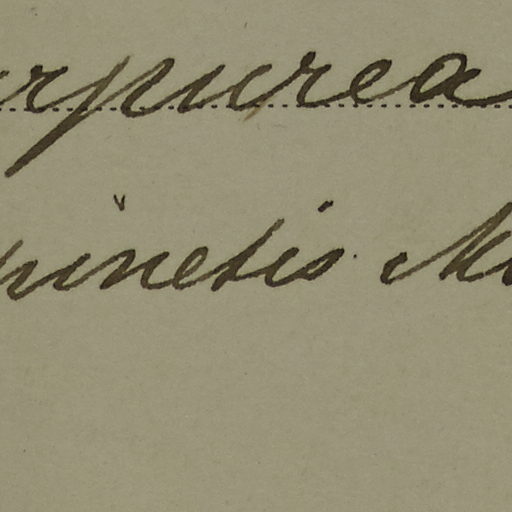 urpurea
pinetis. Mu